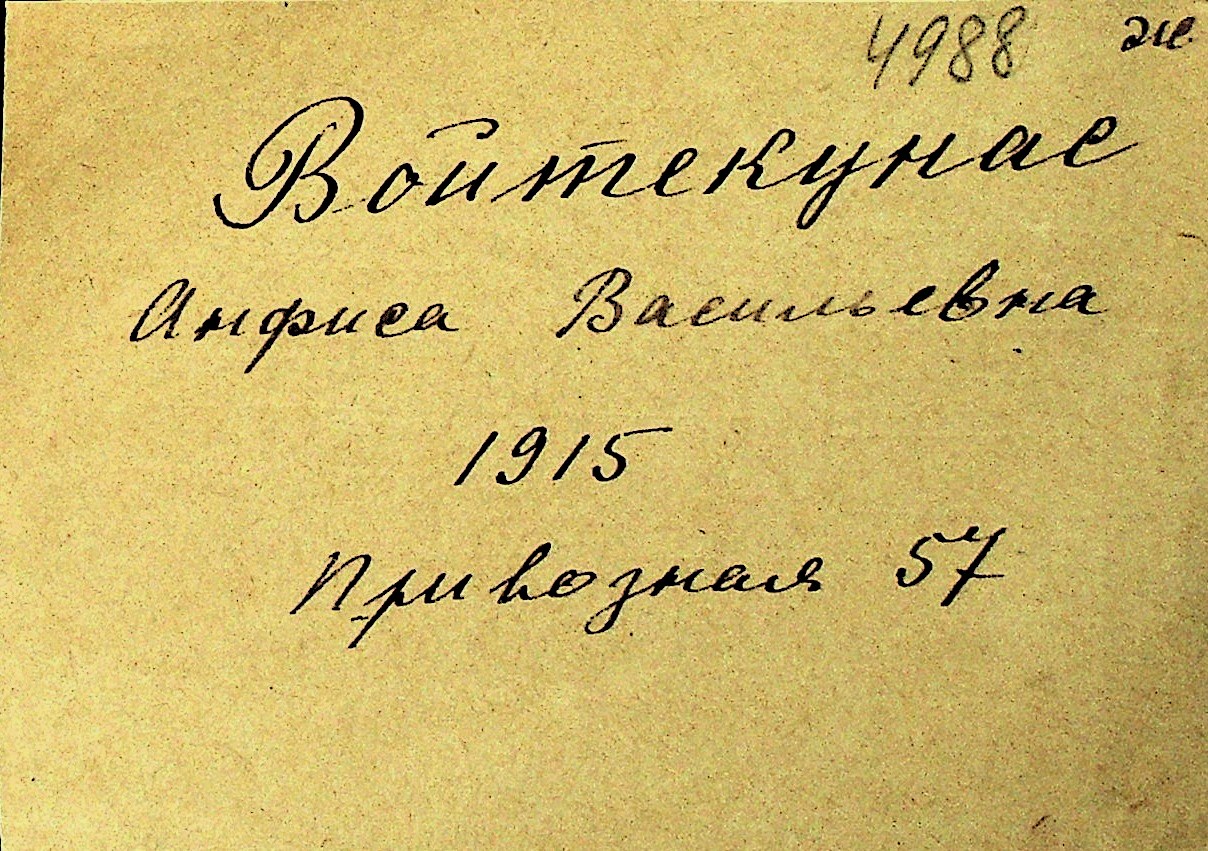 4988 ж
Войтекунас
Анфиса Васильевна
1915
Привозная 57